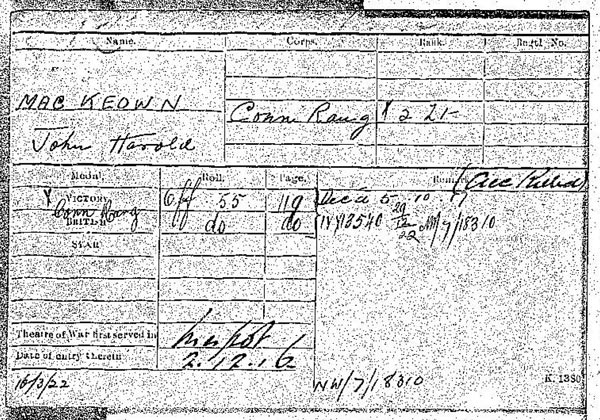 Name. Corps. Rank. Regtl. No.
MAC KEOWN Conn Rang 2 Lt
John Harold
Medal. Roll. Page. Remarks
(Acc Killed)
VICTORY Off 55 119 Dec'd 5.10.17
Conn Rang
BRITISH do do NW/7/18310
STAR
Theatre of War first served in
Date of entry therein 2.12.16
16/3/22 NW/7/18310 K. 1380